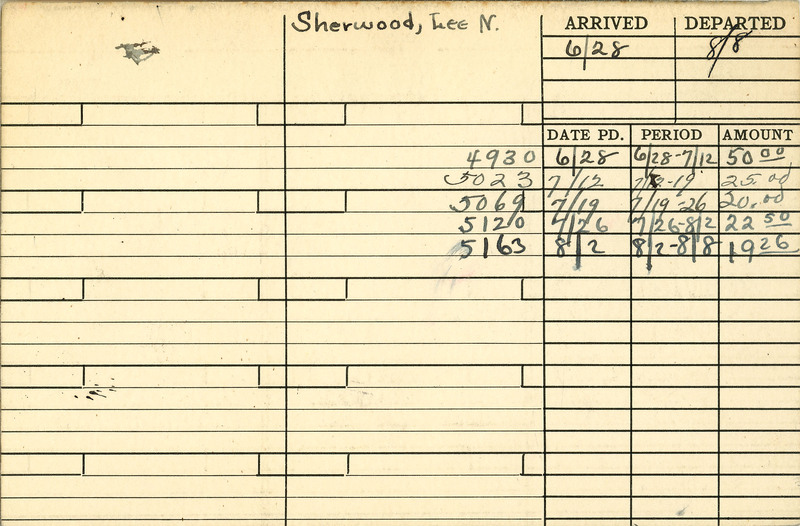 Sherwood, Lee N.
ARRIVED DEPARTED
6/28 8/8
DATE PD. PERIOD AMOUNT
4930 6/28 6/28-7/12 50 00
5023 7/12 7/12-19 25.00
5069 7/19 7/19-26 20.00
5120 7/26 7/26-8/2 22 50
5163 8/2 8/2-8/8 19 26